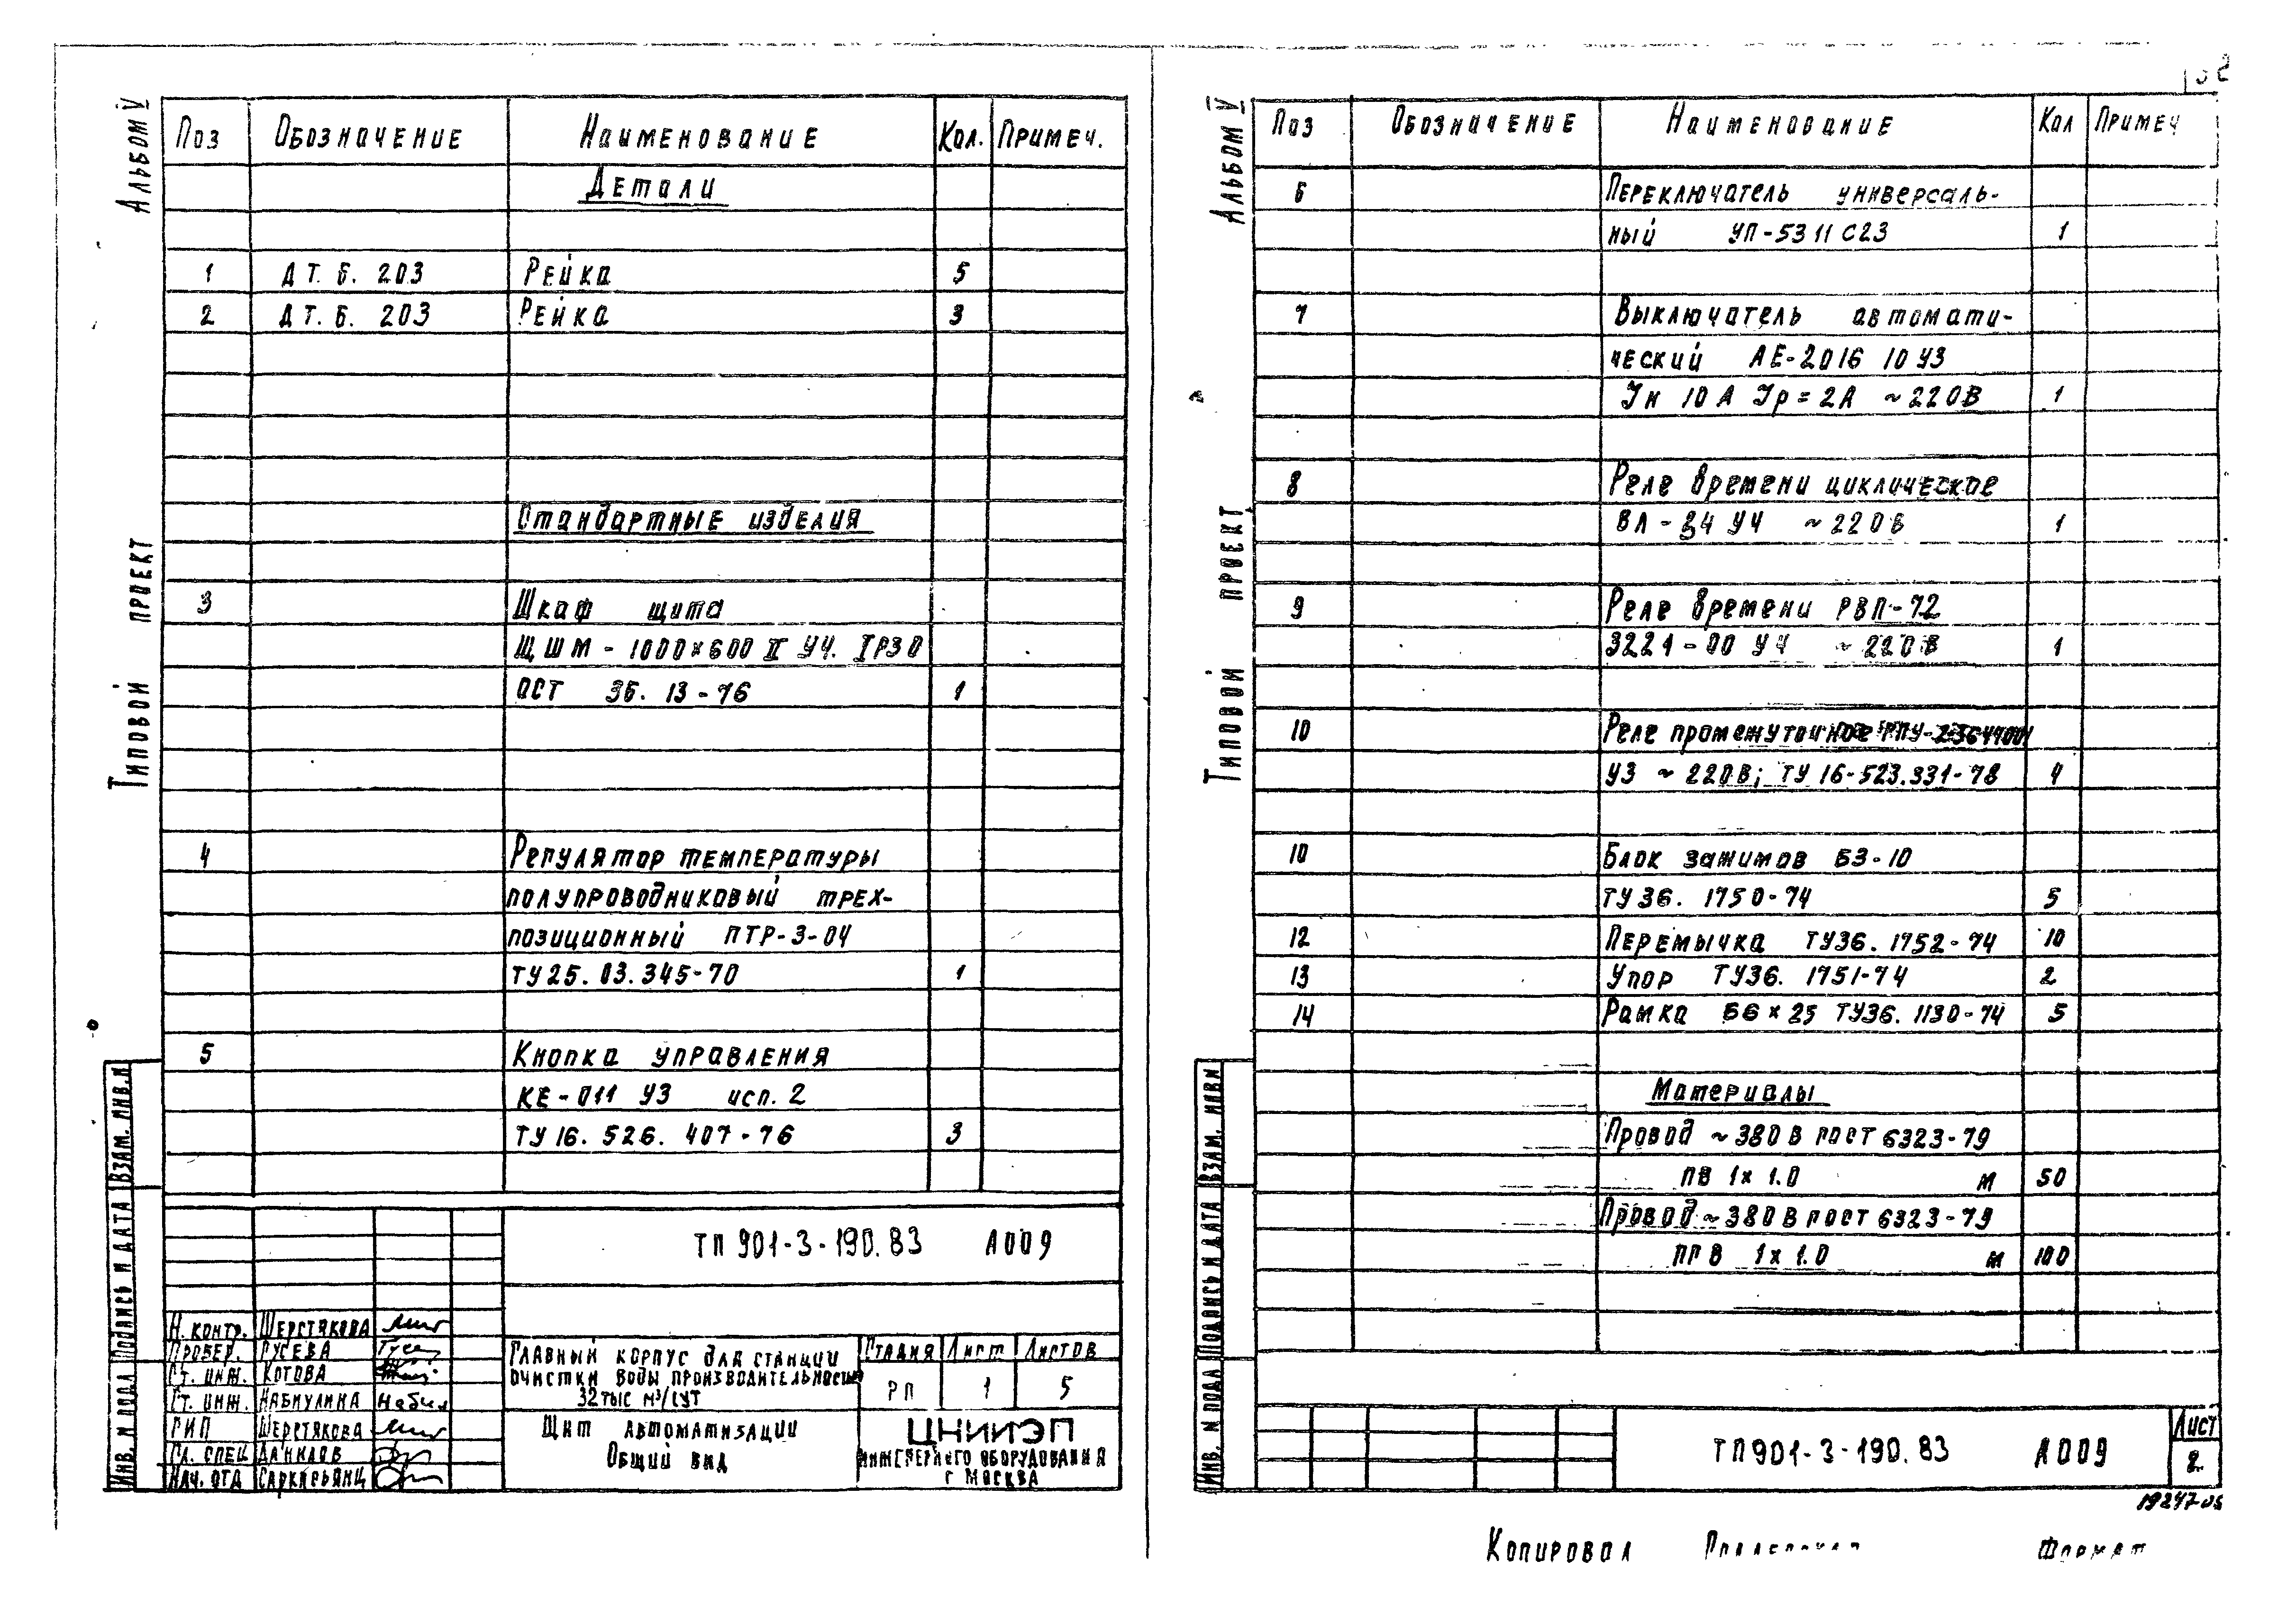 Альбом V
Типовой проект
Поз Обозначение Наименование Кол. Примеч.
Детали
1 ДТ. Б. 203 Рейка 5
2 ДТ. Б. 203 Рейка 3
Стандартные изделия
3 Шкаф щита
ЩШМ - 1000×600 II У4. IP30
ОСТ 36. 13 - 76 1
4 Регулятор температуры
полупроводниковый трех-
позиционный ПТР-3-04
ТУ 25. 03. 345-70 1
5 Кнопка управления
КЕ-011 У3 исп. 2
ТУ 16. 526. 407-76 3
ТП 901-3-190.83 А009
Н. контр. Шерстякова
Провер. Гусева
Ст. инж. Котова
Ст. инж. Набиулина
ГИП Шерстякова
Гл. спец Данилов
Нач. отд
Главный корпус для станции
очистки воды производительностью
32 тыс м³/сут
Стадия Лист Листов
РП 1 5
Щит автоматизации
Общий вид
ЦНИИЭП
инженерного оборудования
г Москва
Инв. N подл Подпись и дата Взам. инв. N
Альбом V
Типовой проект
Поз Обозначение Наименование Кол Примеч
6 Переключатель универсаль-
ный УП-5311 С23 1
7 Выключатель автомати-
ческий АЕ-2016 10 У3
Iн 10А Iр=2А ~220В 1
8 Реле времени циклическое
ВЛ-34 У4 ~220В 1
9 Реле времени РВП-72
3221-00 У4 ~220В 1
10 Реле промежуточное РПУ-
У3 ~220В; ТУ 16-523.331-78 4
10 Блок зажимов БЗ-10
ТУ36. 1750-74 5
12 Перемычка ТУ36. 1752-74 10
13 Упор ТУ36. 1751-74 2
14 Рамка 66×25 ТУ36. 1130-74 5
Материалы
Провод ~380В гост 6323-79
ПВ 1×1.0 м 50
Провод ~380В гост 6323-79
ПГВ 1×1.0 м 100
Инв. N подл Подпись и дата Взам. инв N
ТП901-3-190.83 А009
Лист
2
19247-05
Копировал Формат